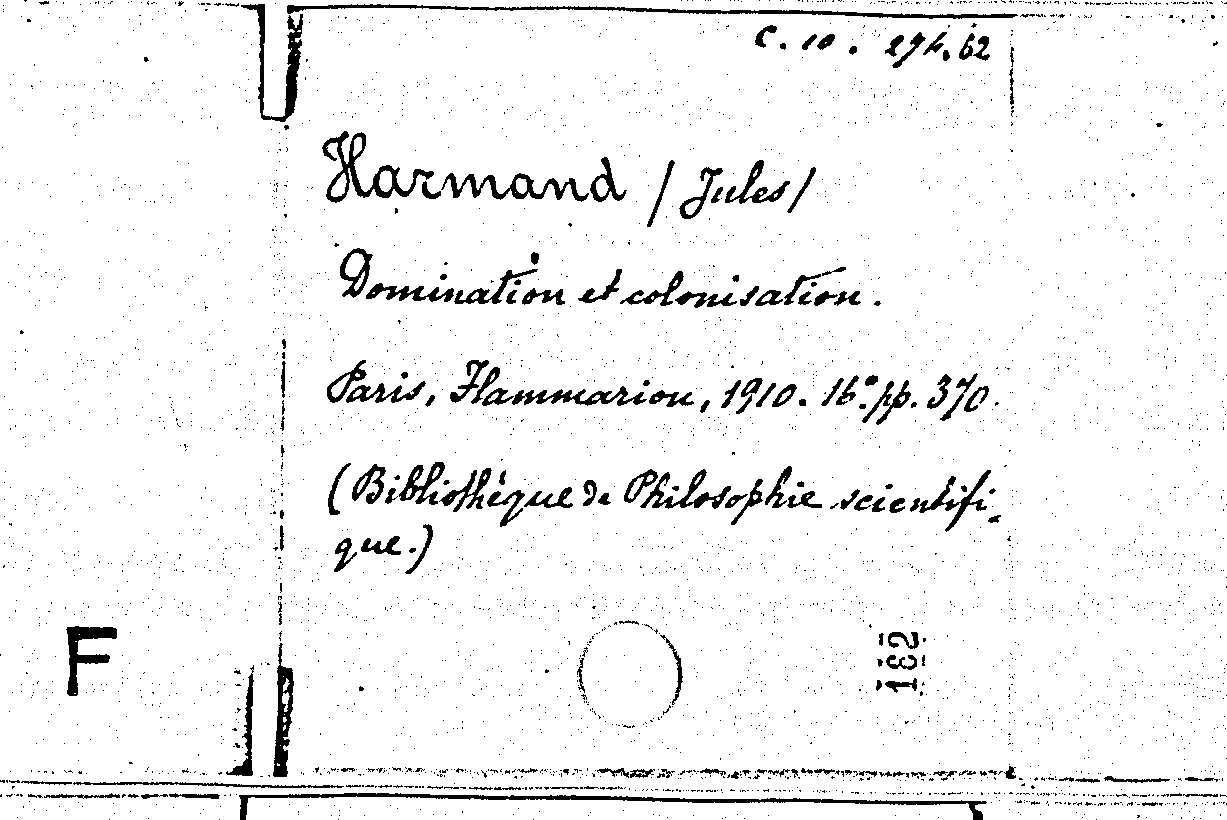 C. 10. 274.62
Harmand /Jules/
Domination et colonisation.
Paris, Flammarion, 1910. 16° pp. 370.
(Bibliothèque de Philosophie scientifi-
que.)
F
182